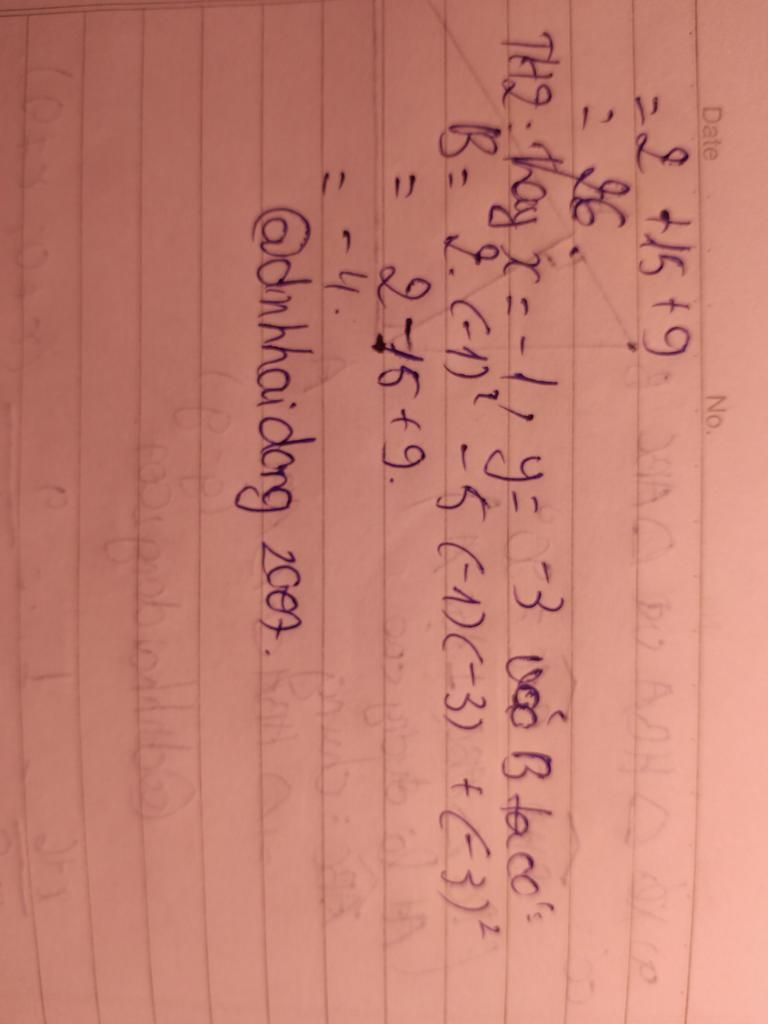 Date No.
= 2 + 15 + 9
= 26
TH2: thay x = -1, y = -3 vào B ta có:
B = 2. (-1)² - 5 (-1)(-3) + (-3)²
= 2 - 15 + 9.
= -4.
@dnhhaidang 2007.